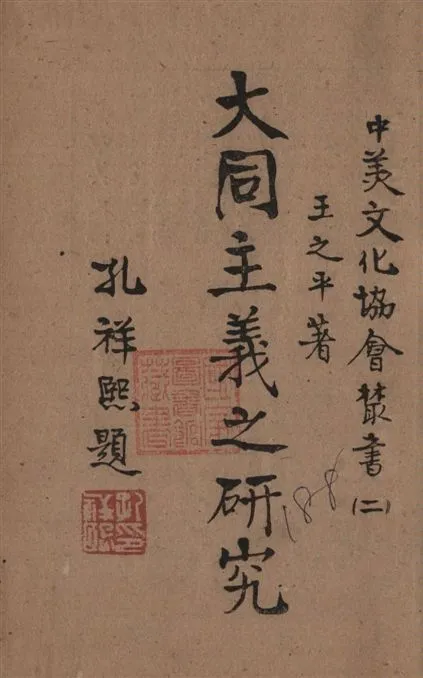 中美文化協會叢書(二)
王之平著
大同主義之研究
188
孔祥熙題